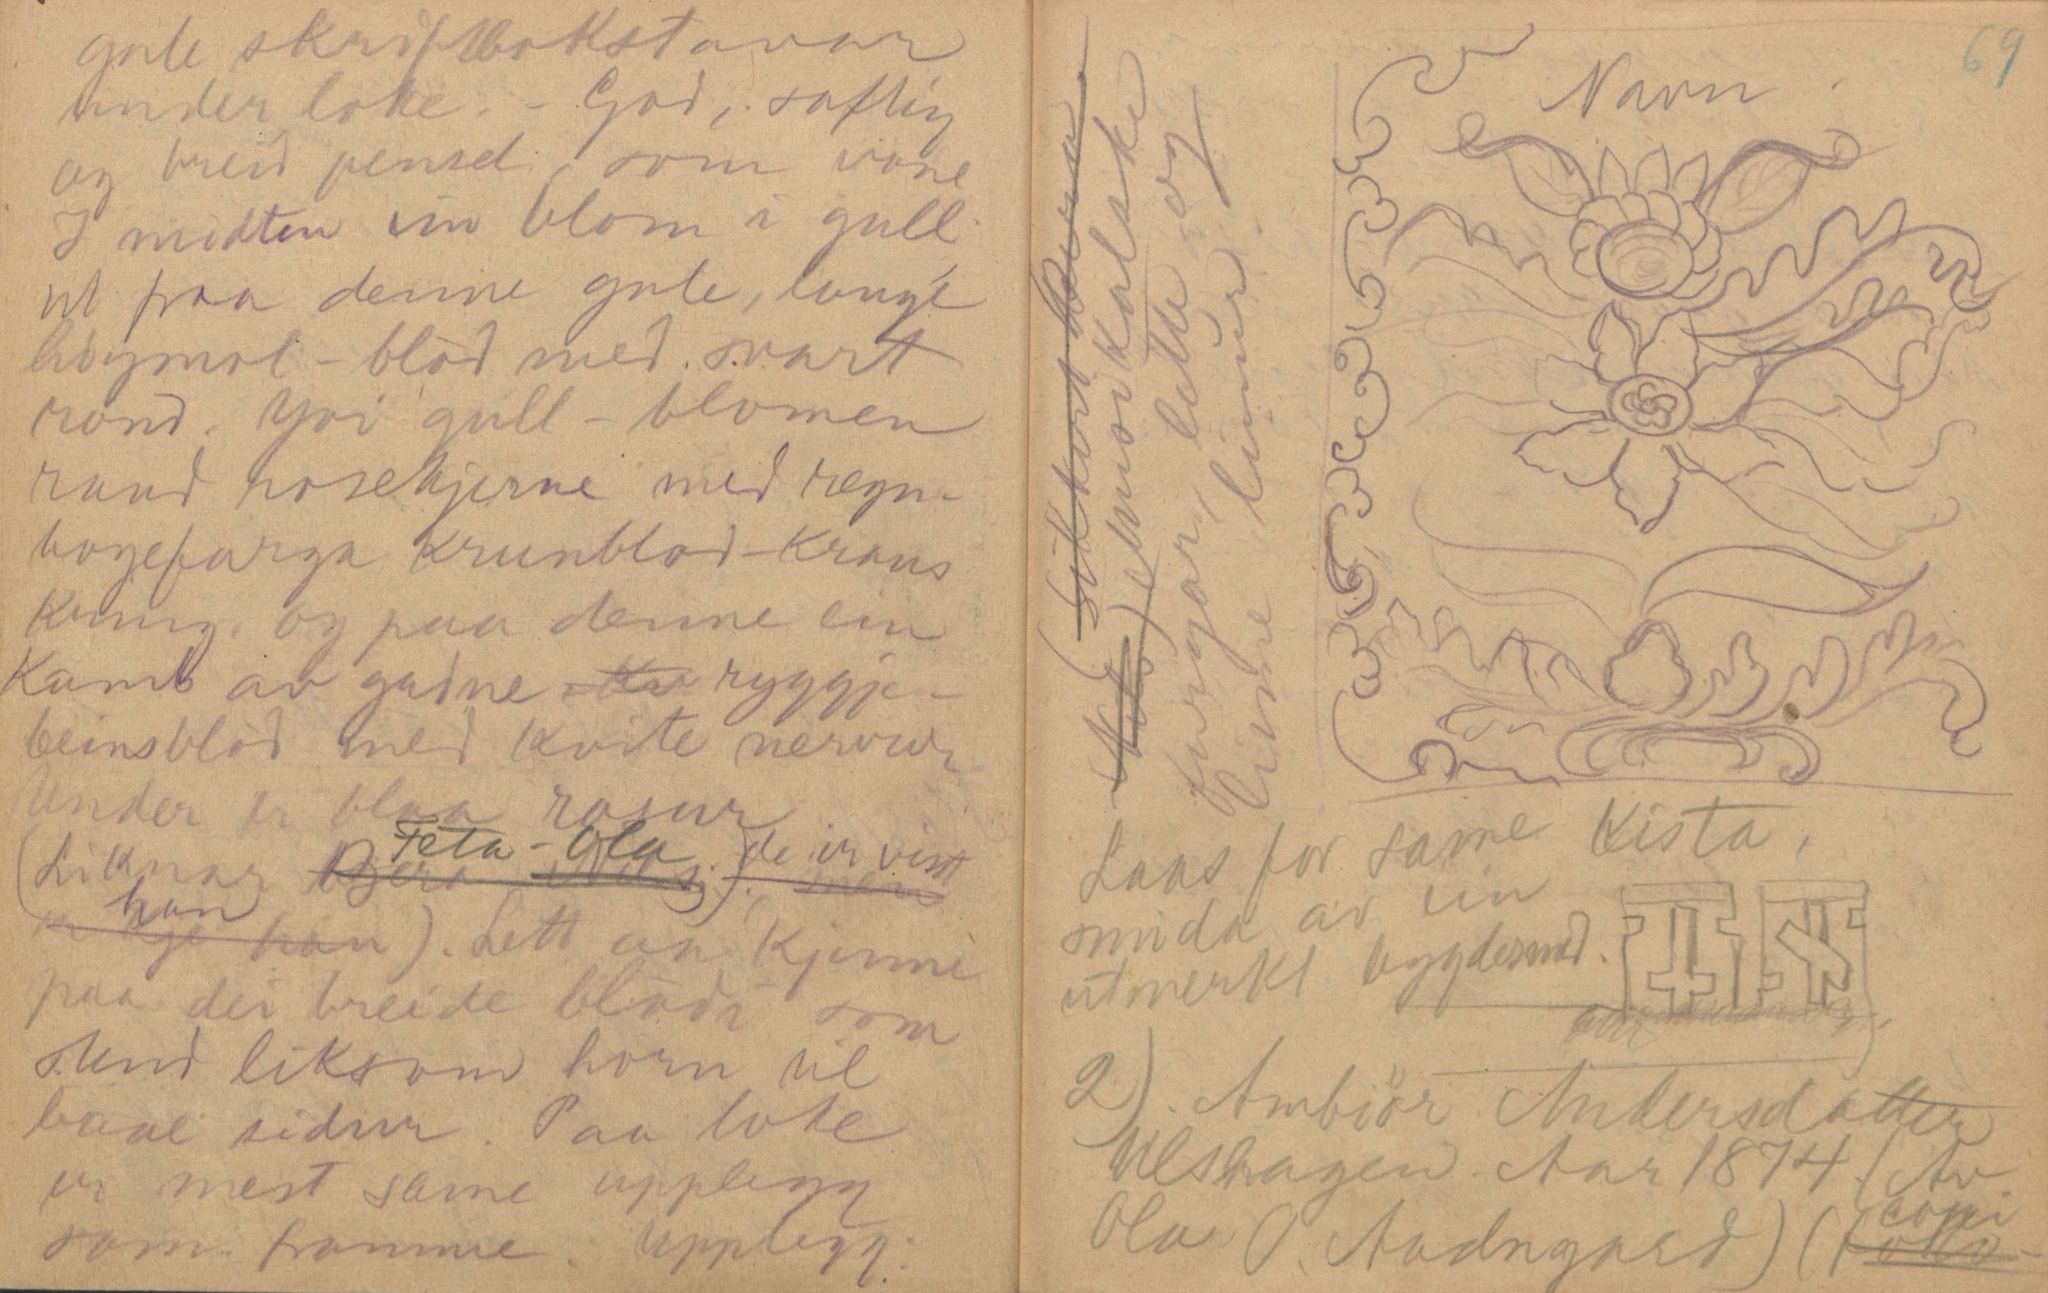 gule skriftbokstavar
under loke. - God, saftig
og breid pensel, som vore
I midten ein blom i gull
ut fraa denne gule, lange
høgmol - blòd med svart
rond. Yvi gull - blomen
raud rosekjerne med regn-
bogefarga krunblod - krans
kring, og paa denne ein
Kamb av gadne ryggje-
beinsblòd med kvite nervur
Under er blaa rosur
(Liknar Feta - Ola de er visst
han). Lett aa kjenne
paa dei breide blòdi som
stend liksom horn til
baae sidur. Paa loke
er mest same upplegg
som framme. Upplegg:
69
Navn.
musikalske
fargar, lette og
linne linur.
Laas for same kista,
smida av ein
utmerkt bygdesmed.
2). Ambiør Andersdatter
Ulshagen. Aar 1874. (Av
Ola O. Aadngard) (